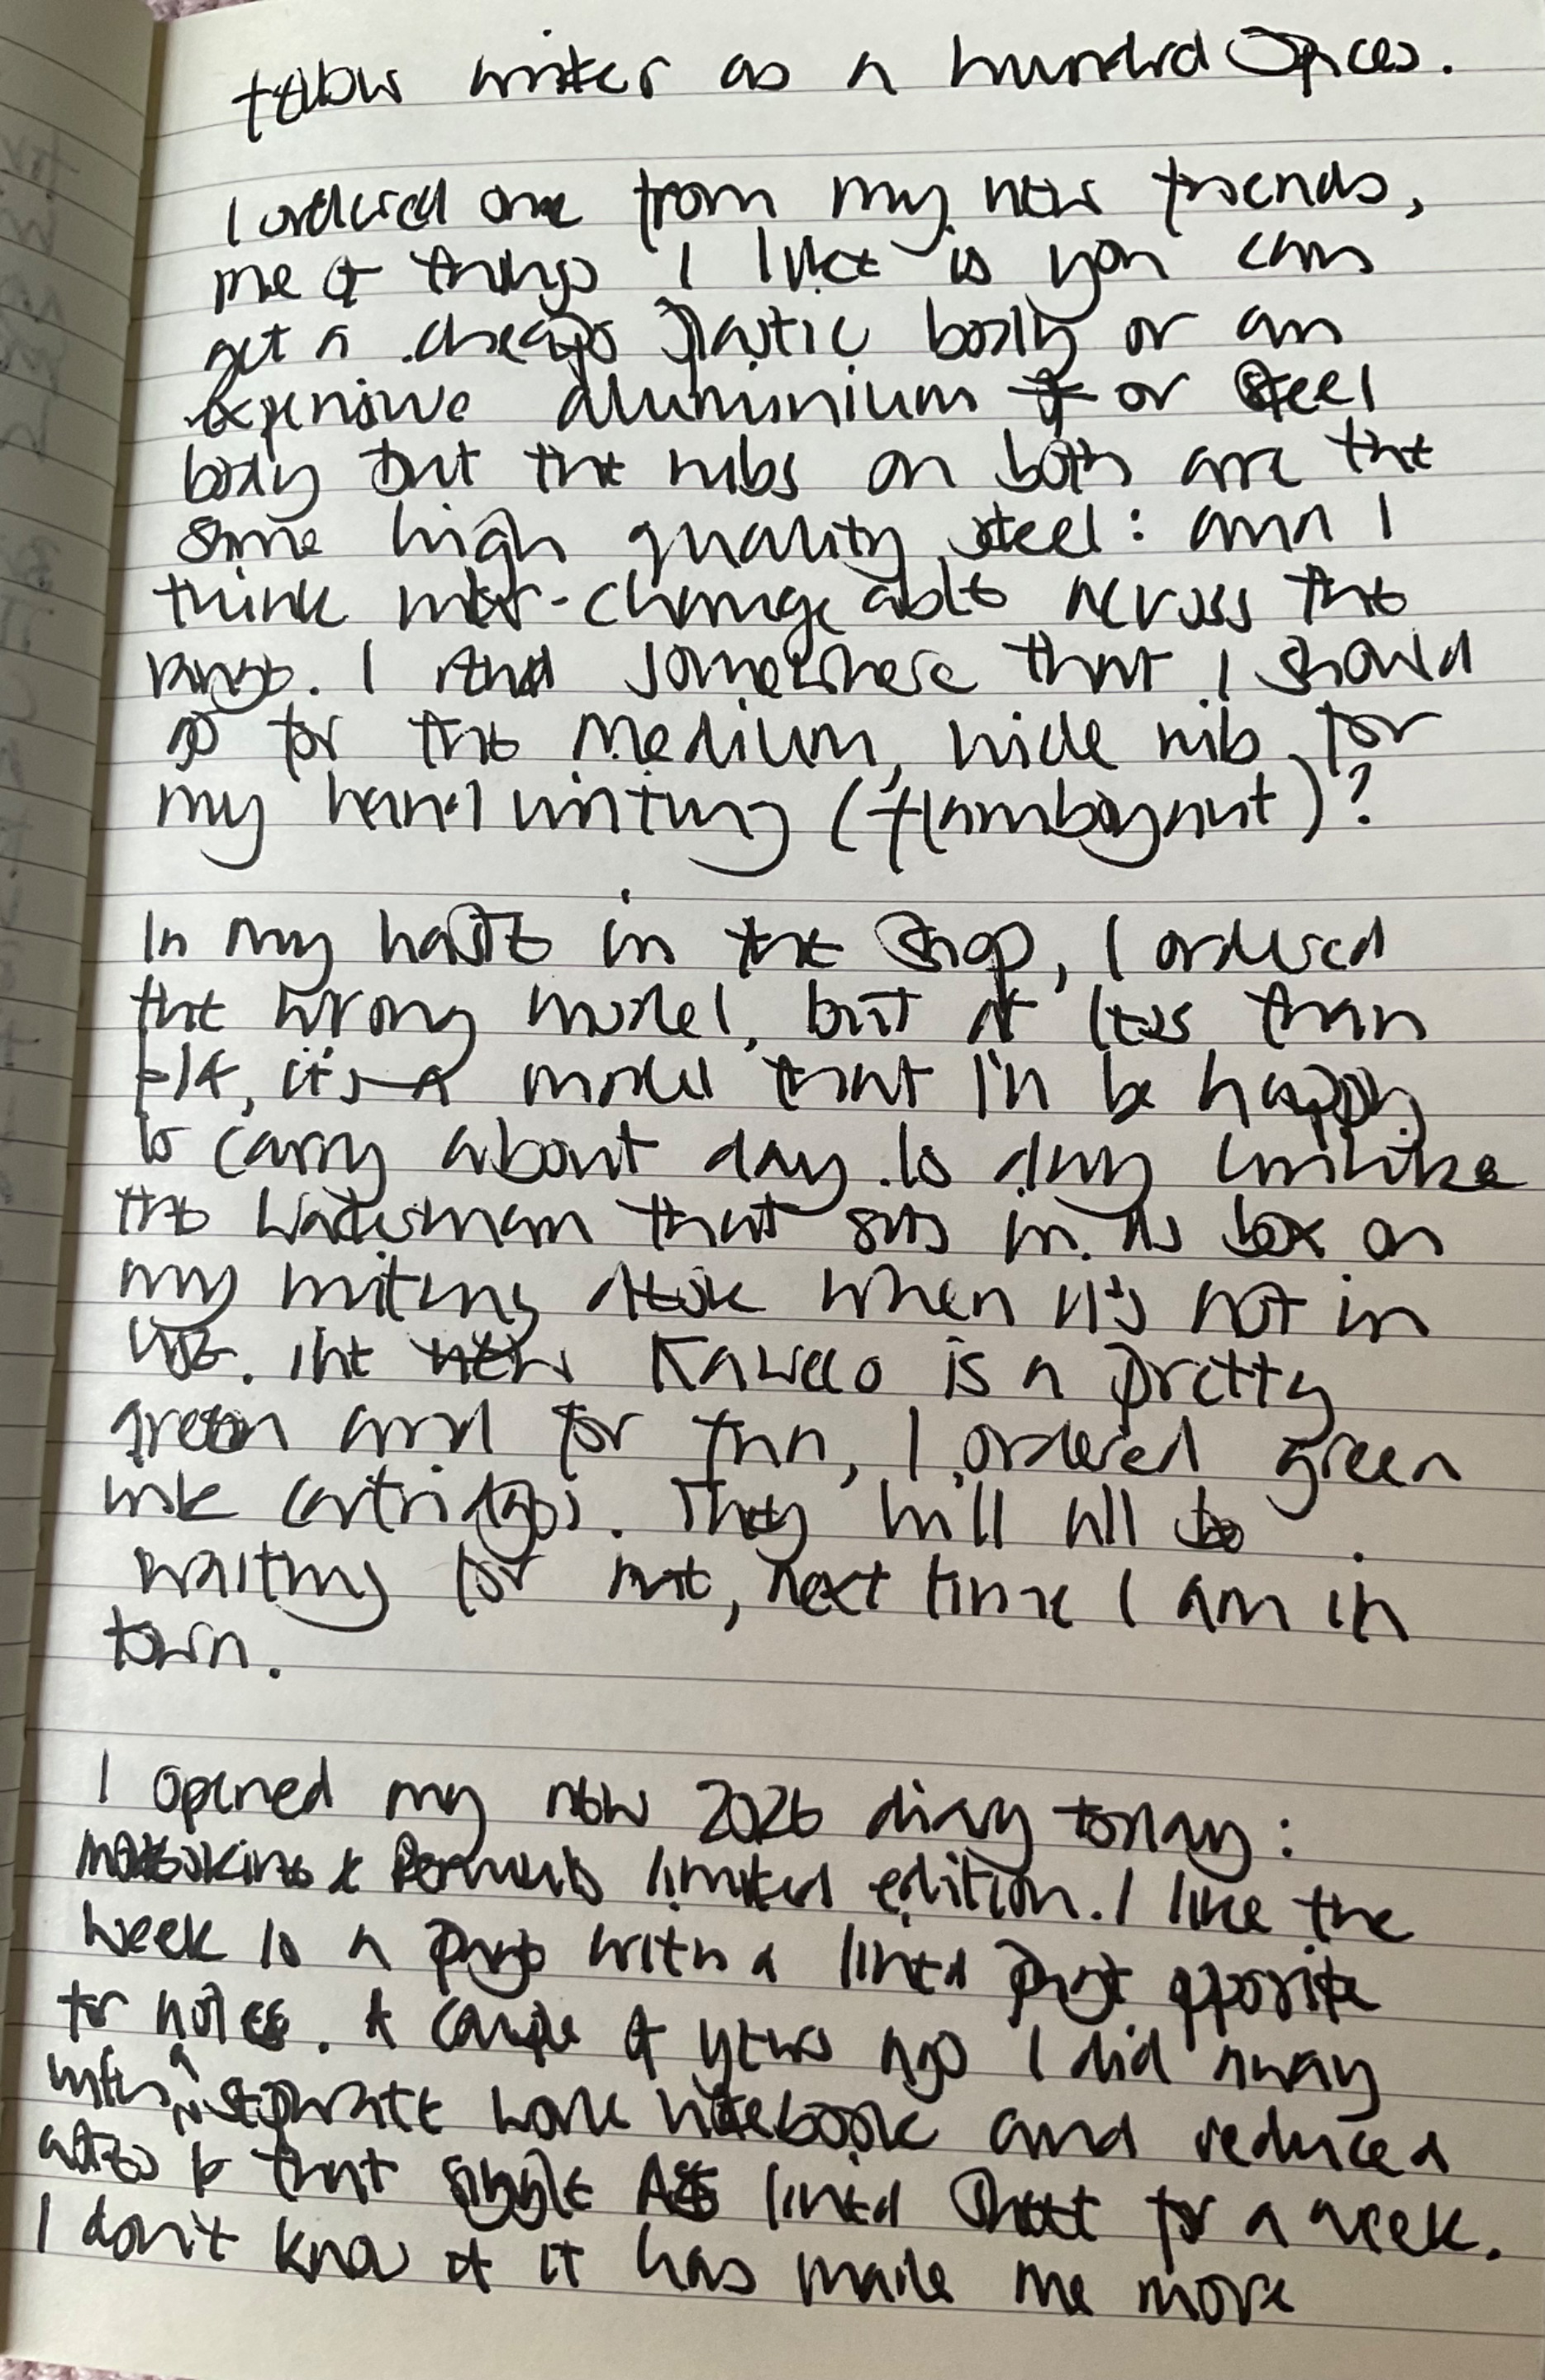 fellow writer as a hundred spices.
I ordered one from my new friends,
one of things I like is you can
get a cheapo plastic body or an
expensive aluminium or steel
body but the nibs on both are the
same high quality steel: and I
think inter-changeable across the
range. I read somewhere that I should
go for the medium, wide nib for
my handwriting (flamboyant)?
In my haste in the shop, I ordered
the wrong model, but at less than
it's a model that I'll be happy
to carry about day to day unlike
the Waterman that sits in its box on
my writing desk when it's not in
use. The new Kaweco is a pretty
green and for fun, I ordered green
ink cartridges. They will all be
waiting for me, next time I am in
town.
I opened my new 2026 diary today:
Moleskine x Peanuts limited edition. I like the
week to a page with a lined page opposite
for notes. A couple of years ago I did away
with a separate work notebook and reduced
to that single A5 lined sheet for a week.
I don't know if it has made me more